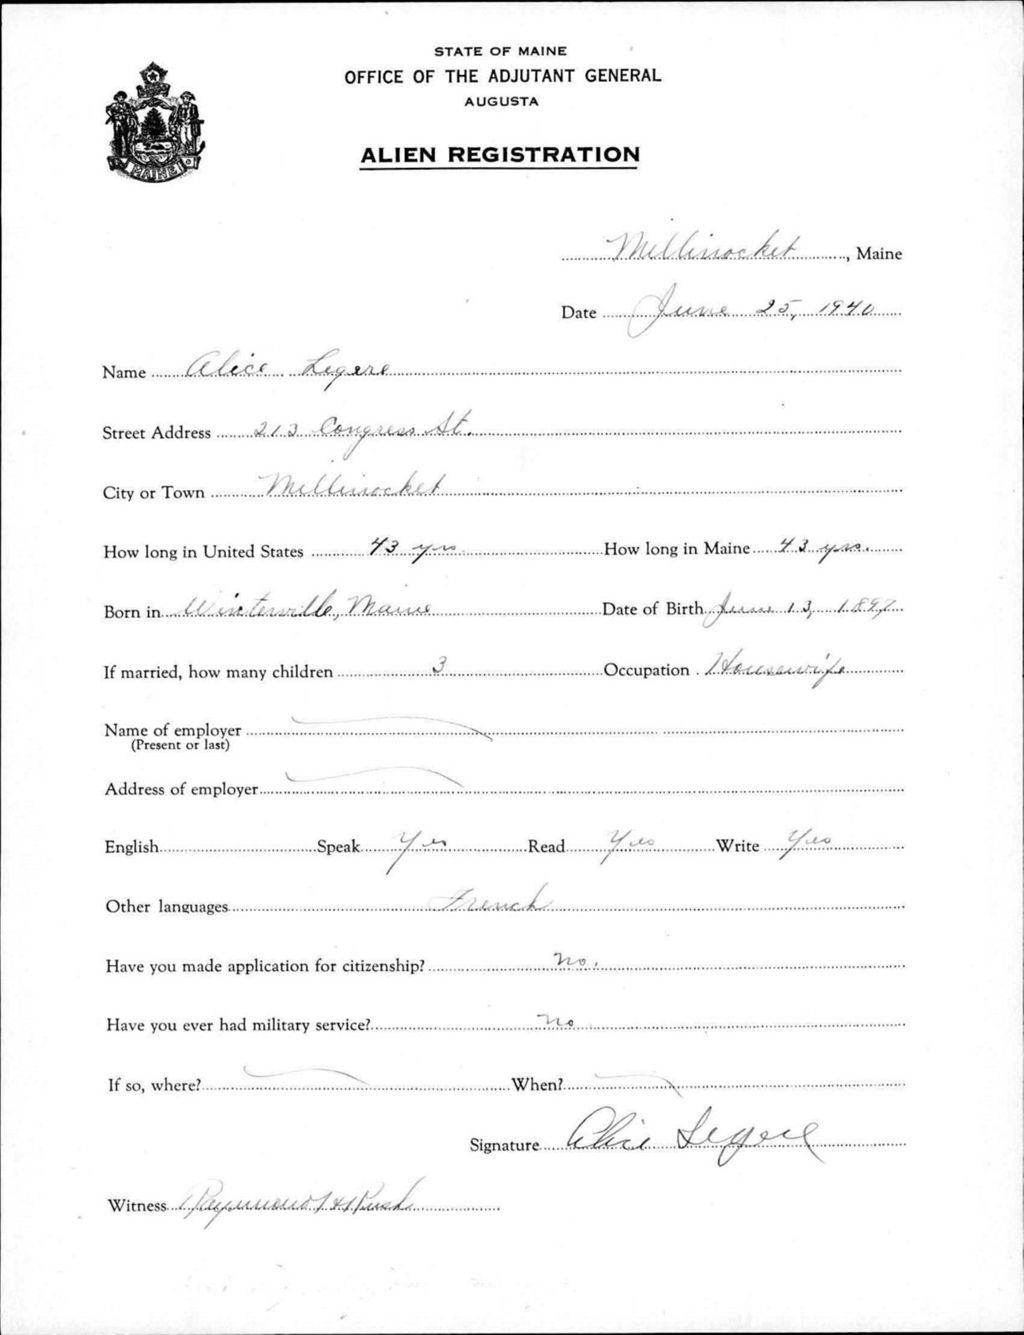 STATE OF MAINE
OFFICE OF THE ADJUTANT GENERAL
AUGUSTA
ALIEN REGISTRATION
MAINE
Millinocket, Maine
Date June 25, 1940
Name Alice Legere
Street Address 213 Congress St.
City or Town Millinocket
How long in United States 43 yrs How long in Maine 43 yrs.
Born in Winterville, Maine Date of Birth June 13, 1897
If married, how many children 3 Occupation Housewife
Name of employer
(Present or last)
Address of employer
English Speak Yes Read Yes Write Yes
Other languages French
Have you made application for citizenship? No.
Have you ever had military service? No
If so, where? When?
Signature Alice Legere
Witness Raymond H Rush